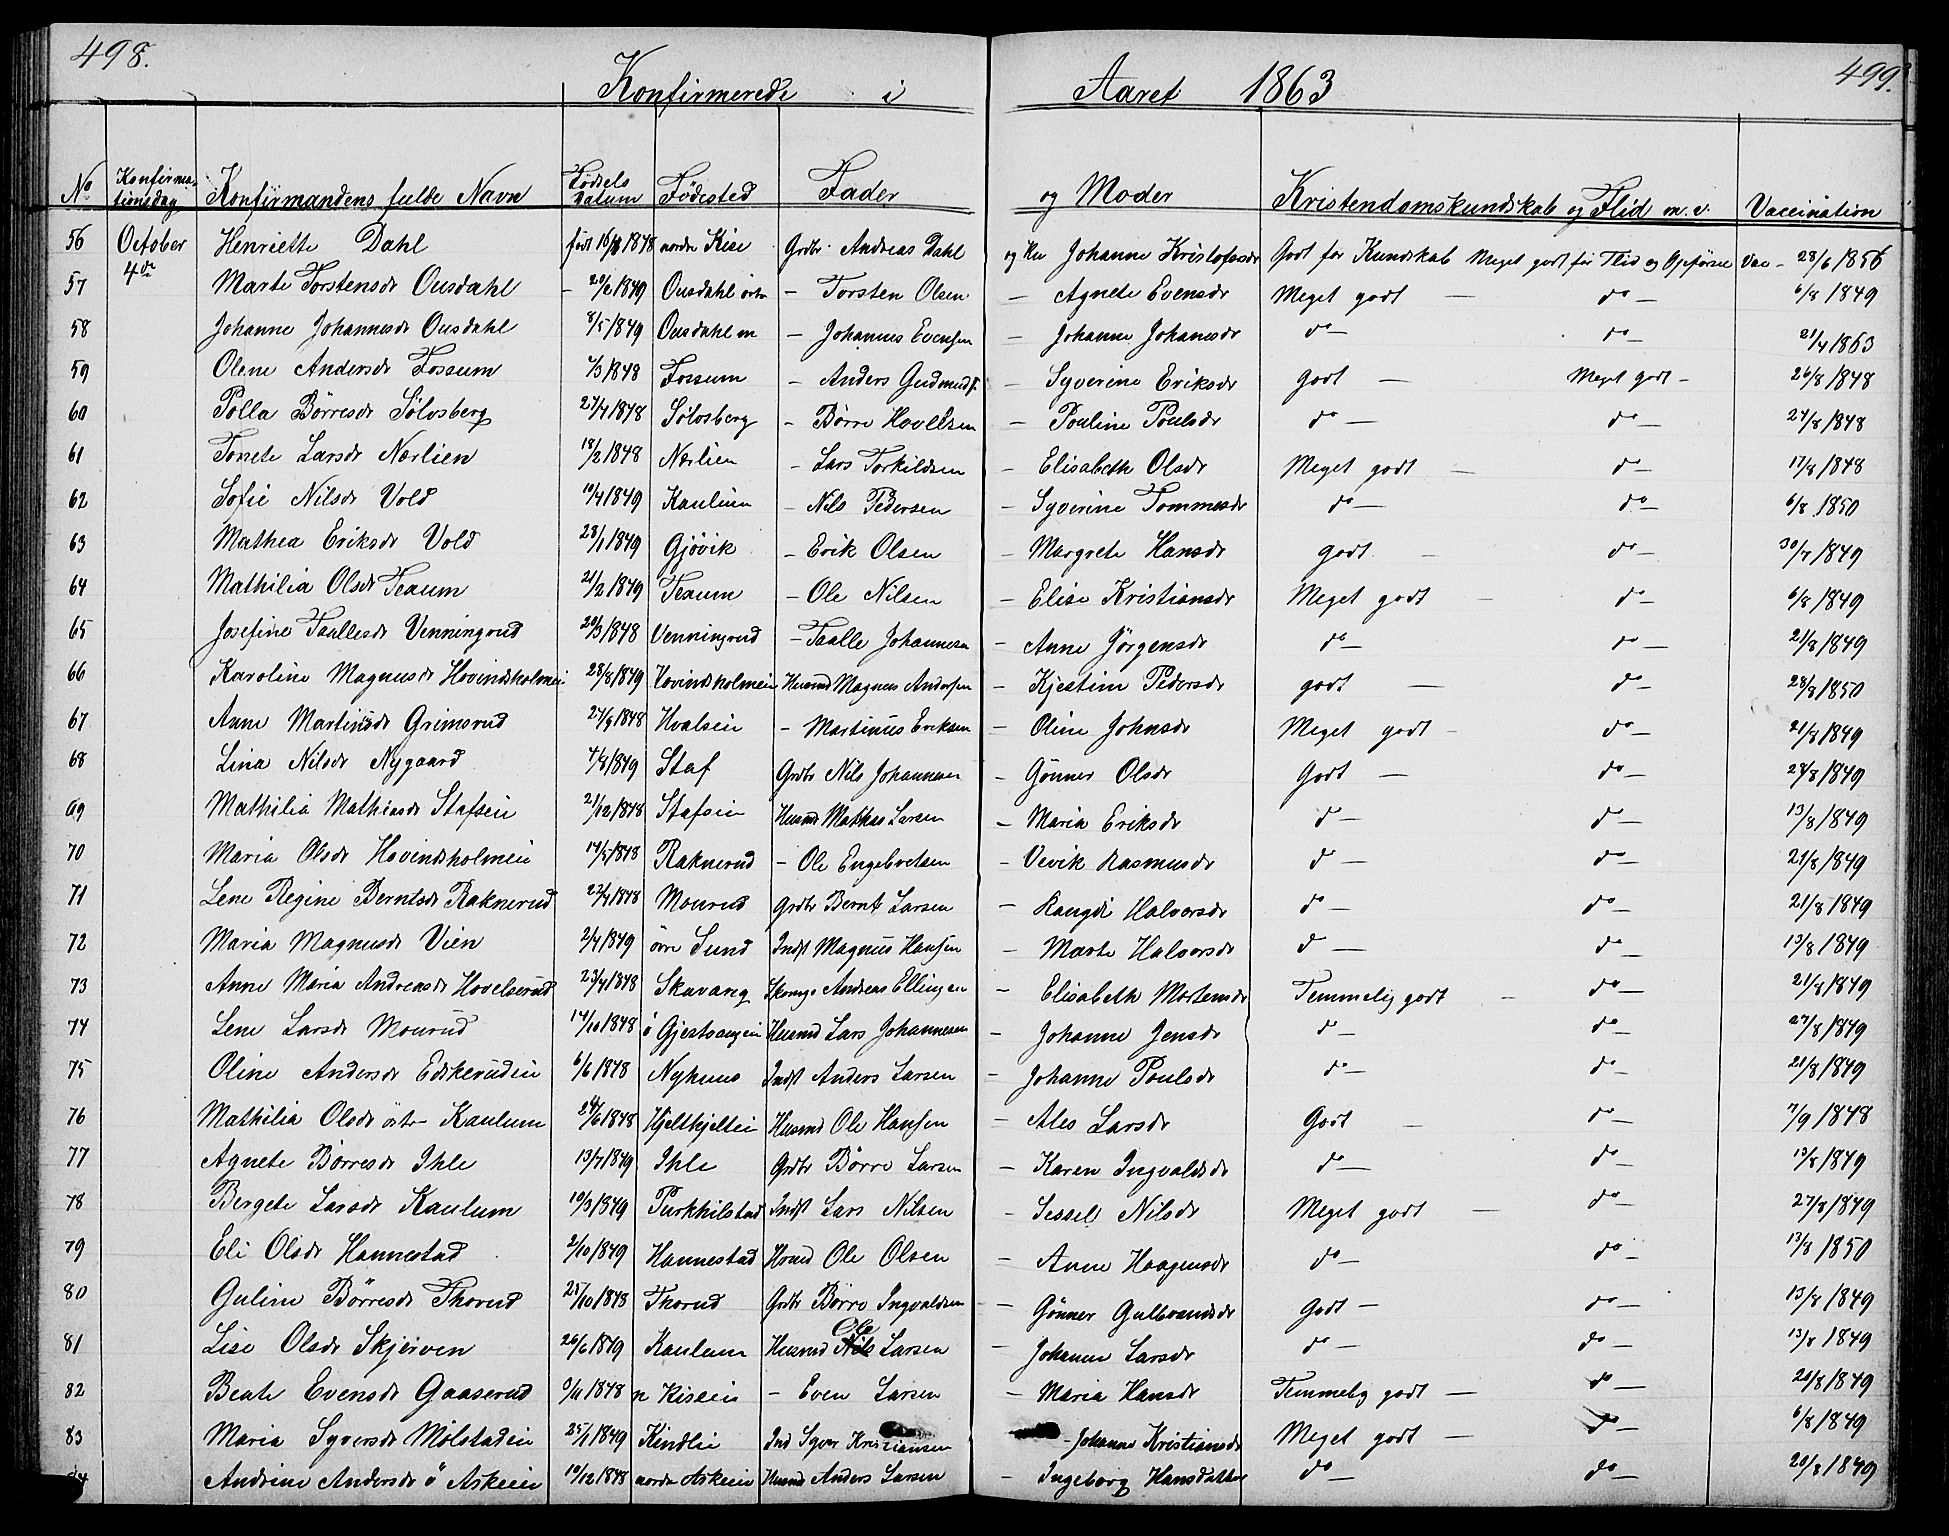 498.
499.
Konfirmerede i Aaret 1863
No Konfirmationsdag Konfirmandens fulde Navn Fødsels Datum Fødested Fader og Moder Kristendomskundskab og Flid m.v. Vaccination
56 October 4de Henriette Dahl født 1848 nordre Kise Grdbr. Andreas Dahl og Kee Johanne Kristofersdr Godt for Kundskab Meget godt for Flid og Opførsel Vac - 28/6 1856
57 Marte Torstensdr Ousdahl - 20/2 1849 Ousdahl østr - Torsten Olsen - Agnete Evensdr Meget godt - do - 6/8 1849
58 Johanne Johannesdr Ousdahl 8/5 1849 Ousdahl m - Johannes Evensen - Johanne Johanesdr do - do - 21/4 1863
59 Olene Andersdr Fossum 4/3 1848 Fossum - Anders Gudmuds. - Syverine Eriksdr Godt - Meget godt - 26/8 1848
60 Polla Børresdr Sølvsberg 27/4 1848 Sølvsberg - Børre Hovelsen - Pouline Poulsdr do - do - 27/8 1848
61 Tonete Larsdr Nærlien 18/2 1848 Nærlien - Lars Torkildsen - Elisabeth Olsdr Meget godt - do - 17/8 1848
62 Sofie Nilsdr Vold 10/4 1849 Kaulum - Nils Pedersen - Syverine Tommesdr do - do - 6/8 1850
63 Mathea Eriksdr Vold 28/1 1849 Gjøvik - Erik Olsen - Margrete Hansdr godt - do - 30/7 1849
64 Mathilia Olsdr Teaum 21/2 1849 Teaum - Ole Nilsen - Elise Kristiansdr Meget godt - do - 6/8 1849
65 Josefine Taallesdr Venningrud 20/3 1848 Venningrud - Taalle Johannesen - Anne Jørgensdr do - do - 21/8 1849
66 Karoline Magnusdr Hovindsholmei 28/8 1849 Hovindsholmein Husmd Magnus Andersen - Kjestine Pedersdr godt - do - 28/8 1850
67 Anne Martinusdr Grimsrud 27/9 1848 Hvalsein - Martinus Eriksen - Oline Johnsdr Meget godt - do - 21/8 1849
68 Lina Nilsdr Nygaard 4/8 1849 Staf Grdbr Nils Johannesen - Gønner Olsdr Godt - do - 28/8 1849
69 Mathilia Mathiasdr Stafsein 21/12 1848 Stafsein Husmd Mathias Larsen - Maria Eriksdr do - do - 13/8 1849
70 Maria Olsdr Hovindsholmein 14/5 1848 Raknerud - Ole Engebretsen - Vevik Rasmusdr do - do - 21/8 1849
71 Lene Regine Berntsdr Raknerud 22/4 1848 Mourud Grdbr Bernt Larsen - Rangdi Halvorsdr do - do - 21/8 1849
72 Maria Magnusdr Vien 2/4 1849 øvre Sund Indst Magnus Hansen - Marte Halvorsdr do - do - 13/8 1849
73 Anne Maria Andreasdr Hovelserud 23/4 1848 Skavang Skomg. Andreas Ellingsen - Elisabeth Mortensdr Temmelig godt - do - 21/8 1849
74 Lene Larsdr Mourud 14/10 1848 ø Gjestvangein Husmd Lars Johannesen - Johanne Jensdr do - do - 27/8 1849
75 Oline Andersdr Eskerudein 6/6 1848 Nyhuus Indst Anders Larsen - Johanne Poulsdr do - do - 21/8 1849
76 Mathilia Olsdr østr Kaulum 24/6 1848 Hjeltkjeltein Husmd Ole Hansen - Ales Larsdr Godt - do - 7/9 1848
77 Agnete Børresdr Ihle 13/7 1849 Ihle Grdbr Børre Larsen - Karen Ingvaldsdr do - do - 13/8 1849
78 Bergete Larsdr Kaulum 10/3 1849 Purkhilstad Indst Lars Nilsen - Sessel Nilsdr Meget godt - do - 27/8 1849
79 Eli Olsdr Hannestad 2/10 1849 Hannestad Hsmd Ole Olsen - Anne Haagensdr do - do - 13/8 1850
80 Guline Børresdr Thorud 25/10 1848 Thorud Grdbr Børre Ingvaldsen - Gønner Gulbrandsdr Godt - do - 13/8 1849
81 Lise Olsdr Skjerven 26/6 1849 Kaulum Husmd Ole Larsen - Johanne Larsdr do - do - 13/8 1849
82 Beate Evensdr Gaaserud 9/11 1848 n Kissein - Even Larsen - Maria Hansdr Temmelig godt - do - 20/8 1849
83 Maria Syversdr Mølstadein 25/1 1849 Kindlie Ind Syver Kristiansen - Johanne Kristiansdr Meget godt - do - 6/8 1849
84 Andrine Andersdr ø Askein 10/12 1848 nordr Askein Husmd Anders Larsen - Ingeborg Hansdatter do - do - 20/8 1849